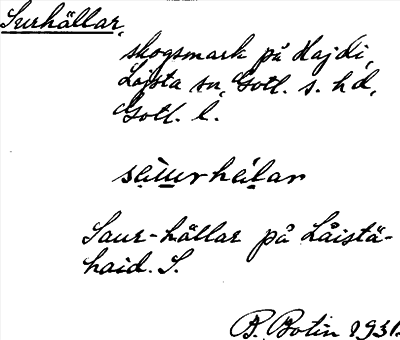 Surhällar,
skogsmark på Hajdi,
Lojsta sn, Gotl. s. hd,
Gotl. l.
Saur-hällar på Låistä-
haid. S.
B. Botin 1931.